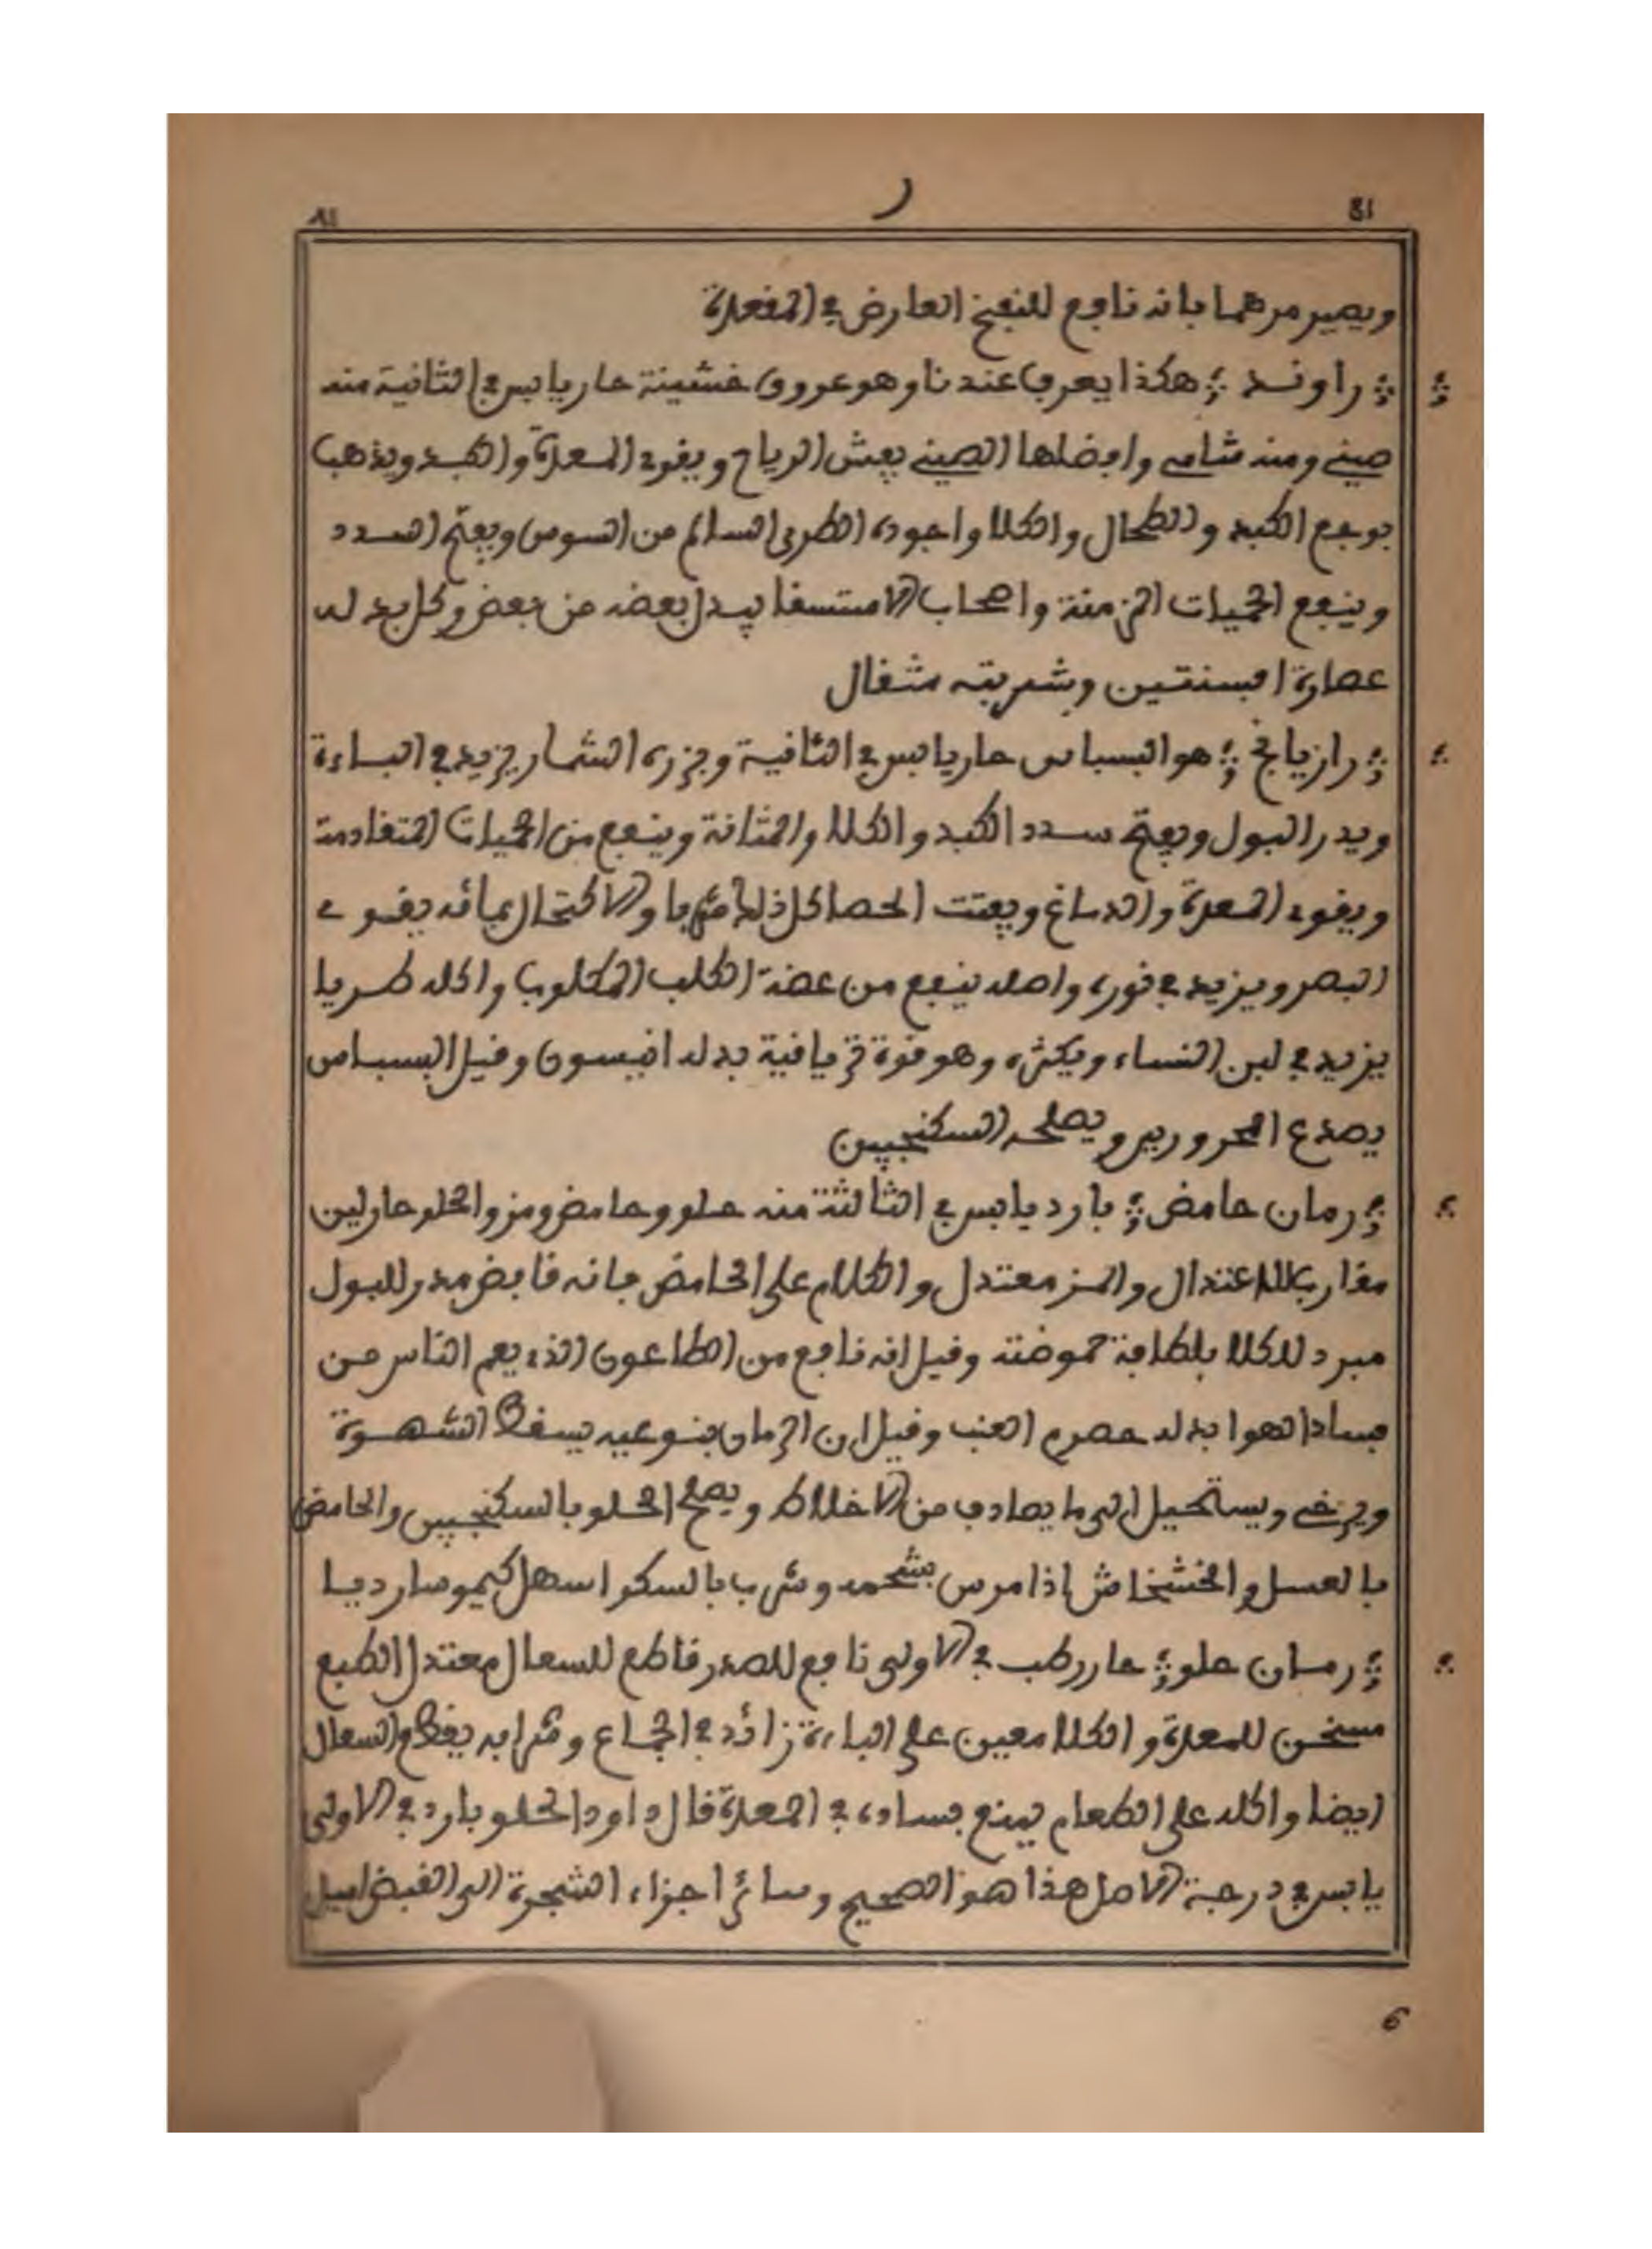 81 ر ٨١
ويصير مرهما بانه نافع للنفخ العارض في المفعدة
؞ راوند ؞ هكذا يعرف عندنا وهو عروق خشينة حار يابس في الثانية منه
صيني ومنه شامي وافضلها الصيني يفش الرياح ويقوي المعدة والكبد ويذهب
بوجع الكبد والطحال والكلا واجوده الطري السالم من السوس ويفتح السدد
وينفع الحميات المزمنة واصحاب الاستسقا يبدل بعضه من بعض وكل بدله
عصارة افسنتين وشربته مثقال
؞ رازيانج ؞ هو البسباس حار يابس في الثانية وبزره الشمار يزيد في الباءة
ويدر البول ويفتح سدد الكبد والكلا والمثانة وينفع من الحميات المتقادمة
ويقوي المعدة والدماغ ويفتت الحصا كل ذلك شربا والاكتحال بمائه يقوي
البصر ويزيد في نوره واصله ينفع من عضة الكلب المكلوب واكله طريا
يزيد في لبن النساء ويكثره وهو قوة ترياقية بدله انيسون وقيل البسباس
يصدع المحرورين ويصلحه السكنجبين
؞ رمان حامض ؞ بارد يابس في الثالثة منه حلو وحامض ومز والحلو حار لين
مقارب للاعتدال والمز معتدل والكلام على الحامض فانه قابض مدر للبول
مبرد للكلا بلطافة حموضته وقيل انه نافع من الطاعون الذي يعم الناس من
فساد الهوا بدله حصرم العنب وقيل ان الرمان بنوعيه يسقط الشهوة
ويرخي ويستحيل الى ما يصادف من الاخلاط ويصلح الحلو بالسكنجبين والحامض
بالعسل والخشخاش اذا مرس بشحمه وشرب بالسكر اسهل كيموسا رديا
؞ رمان حلو ؞ حار رطب في الاولى نافع للصدر قاطع للسعال معتدل الطبع
مسخن للمعدة والكلا معين على الباءة زائد في الجماع وشرابه يقطع السعال
ايضا واكله على الطعام يمنع فساده في المعدة قال داود الحلو بارد في الاولى
يابس في درجة الاصل هذا هو الصحيح وسائر اجزاء الشجرة الى القبض اميل
6